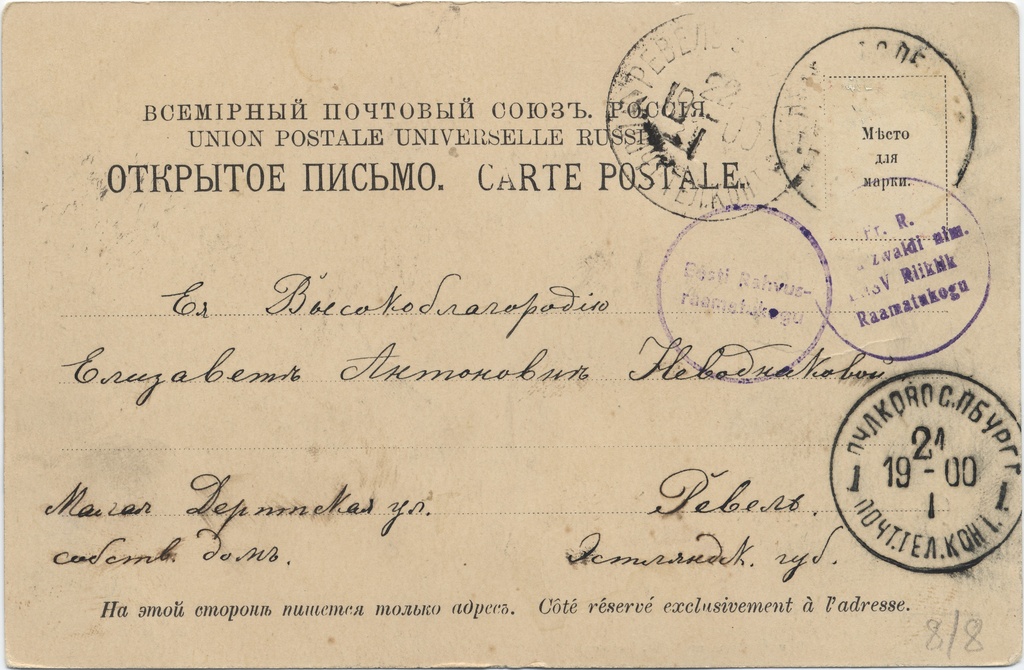 ВСЕМІРНЫЙ ПОЧТОВЫЙ СОЮЗЪ. РОССІЯ.
UNION POSTALE UNIVERSELLE RUSSIE
ОТКРЫТОЕ ПИСЬМО. CARTE POSTALE.
РЕВЕЛЬ
22
00
Мѣсто
для
марки.
Fr. R.
nim.
Riiklik
Raamatukogu
Eesti Rahvus-
raamatukogu
Ея Высокоблагородію
Елизаветѣ Антоновнѣ Неводниковой
ПУЛКОВО С.ПБУРГ.Г.
21
19 - 00
I
1 1
ПОЧТ.ТЕЛ.КОН.
Малая Дерптская ул. Ревель.
собств. домъ. Эстляндск. губ.
На этой сторонѣ пишется только адресъ. Côté réservé exclusivement à l'adresse.
8/8